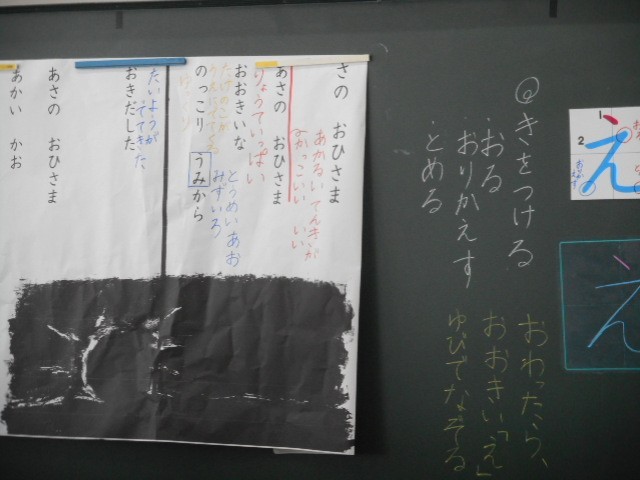 @きをつける
おる
おりかえす
とめる
おわったら、
おおきい「え」
ゆびでなぞる
1
2
え
え
さの おひさま
あかるい てんきが
かっこいい いい
あさの おひさま
りょうていっぱい
おおきいな
のっこり うみから
とうめい あお
みずいろ
たいようが
でてきた
おきだした
あさの おひさま
あかい かお